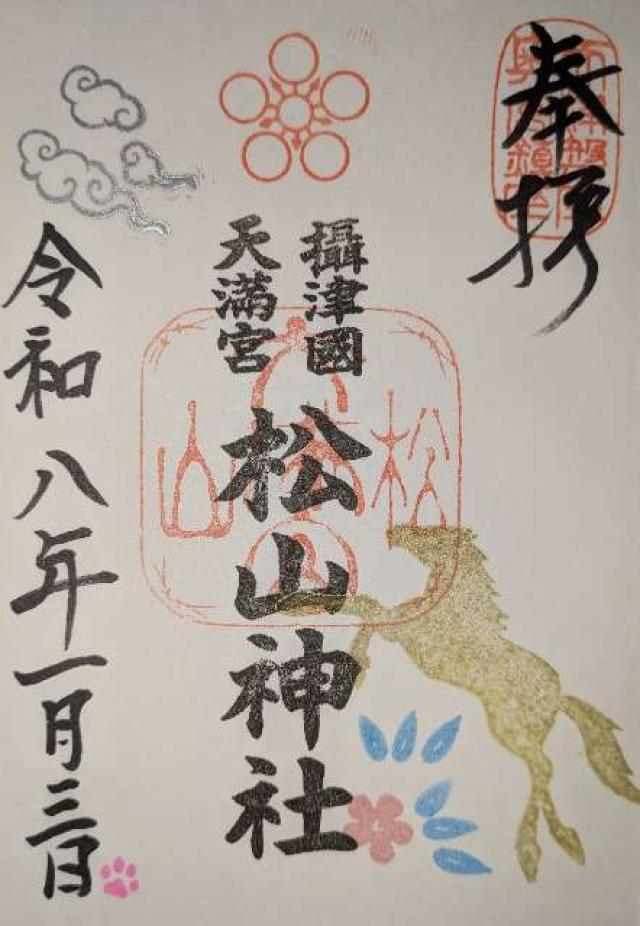 奉拝
攝津國
天満宮
松山神社
令和八年一月三日
松
山